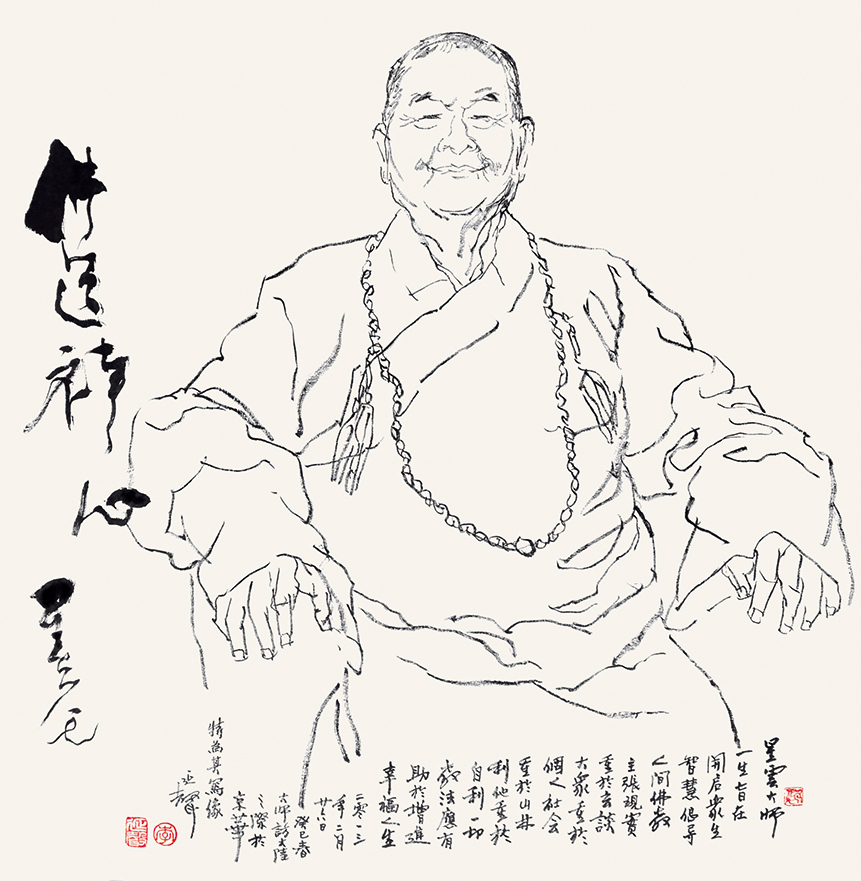 星雲大师
一生旨在
開启衆生
智慧倡导
人间佛教
主張现實
重於玄談
大衆重於
個人社会
重於山林
利他重於
自利一切
教法應有
助於增進
幸福人生
二零一三
年二月
廿六日
癸巳春
大师訪大陸
之際於
京華
特為其寫像
延聲
佛道禅心
星云